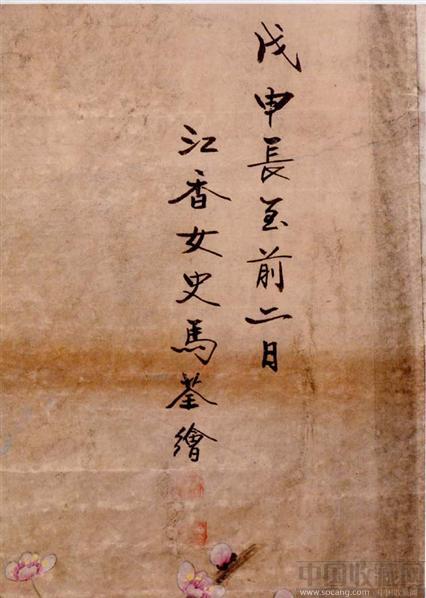 戊申長至前二日
江香女史馬荃繪
中国收藏网
www.socang.com 中国收藏网